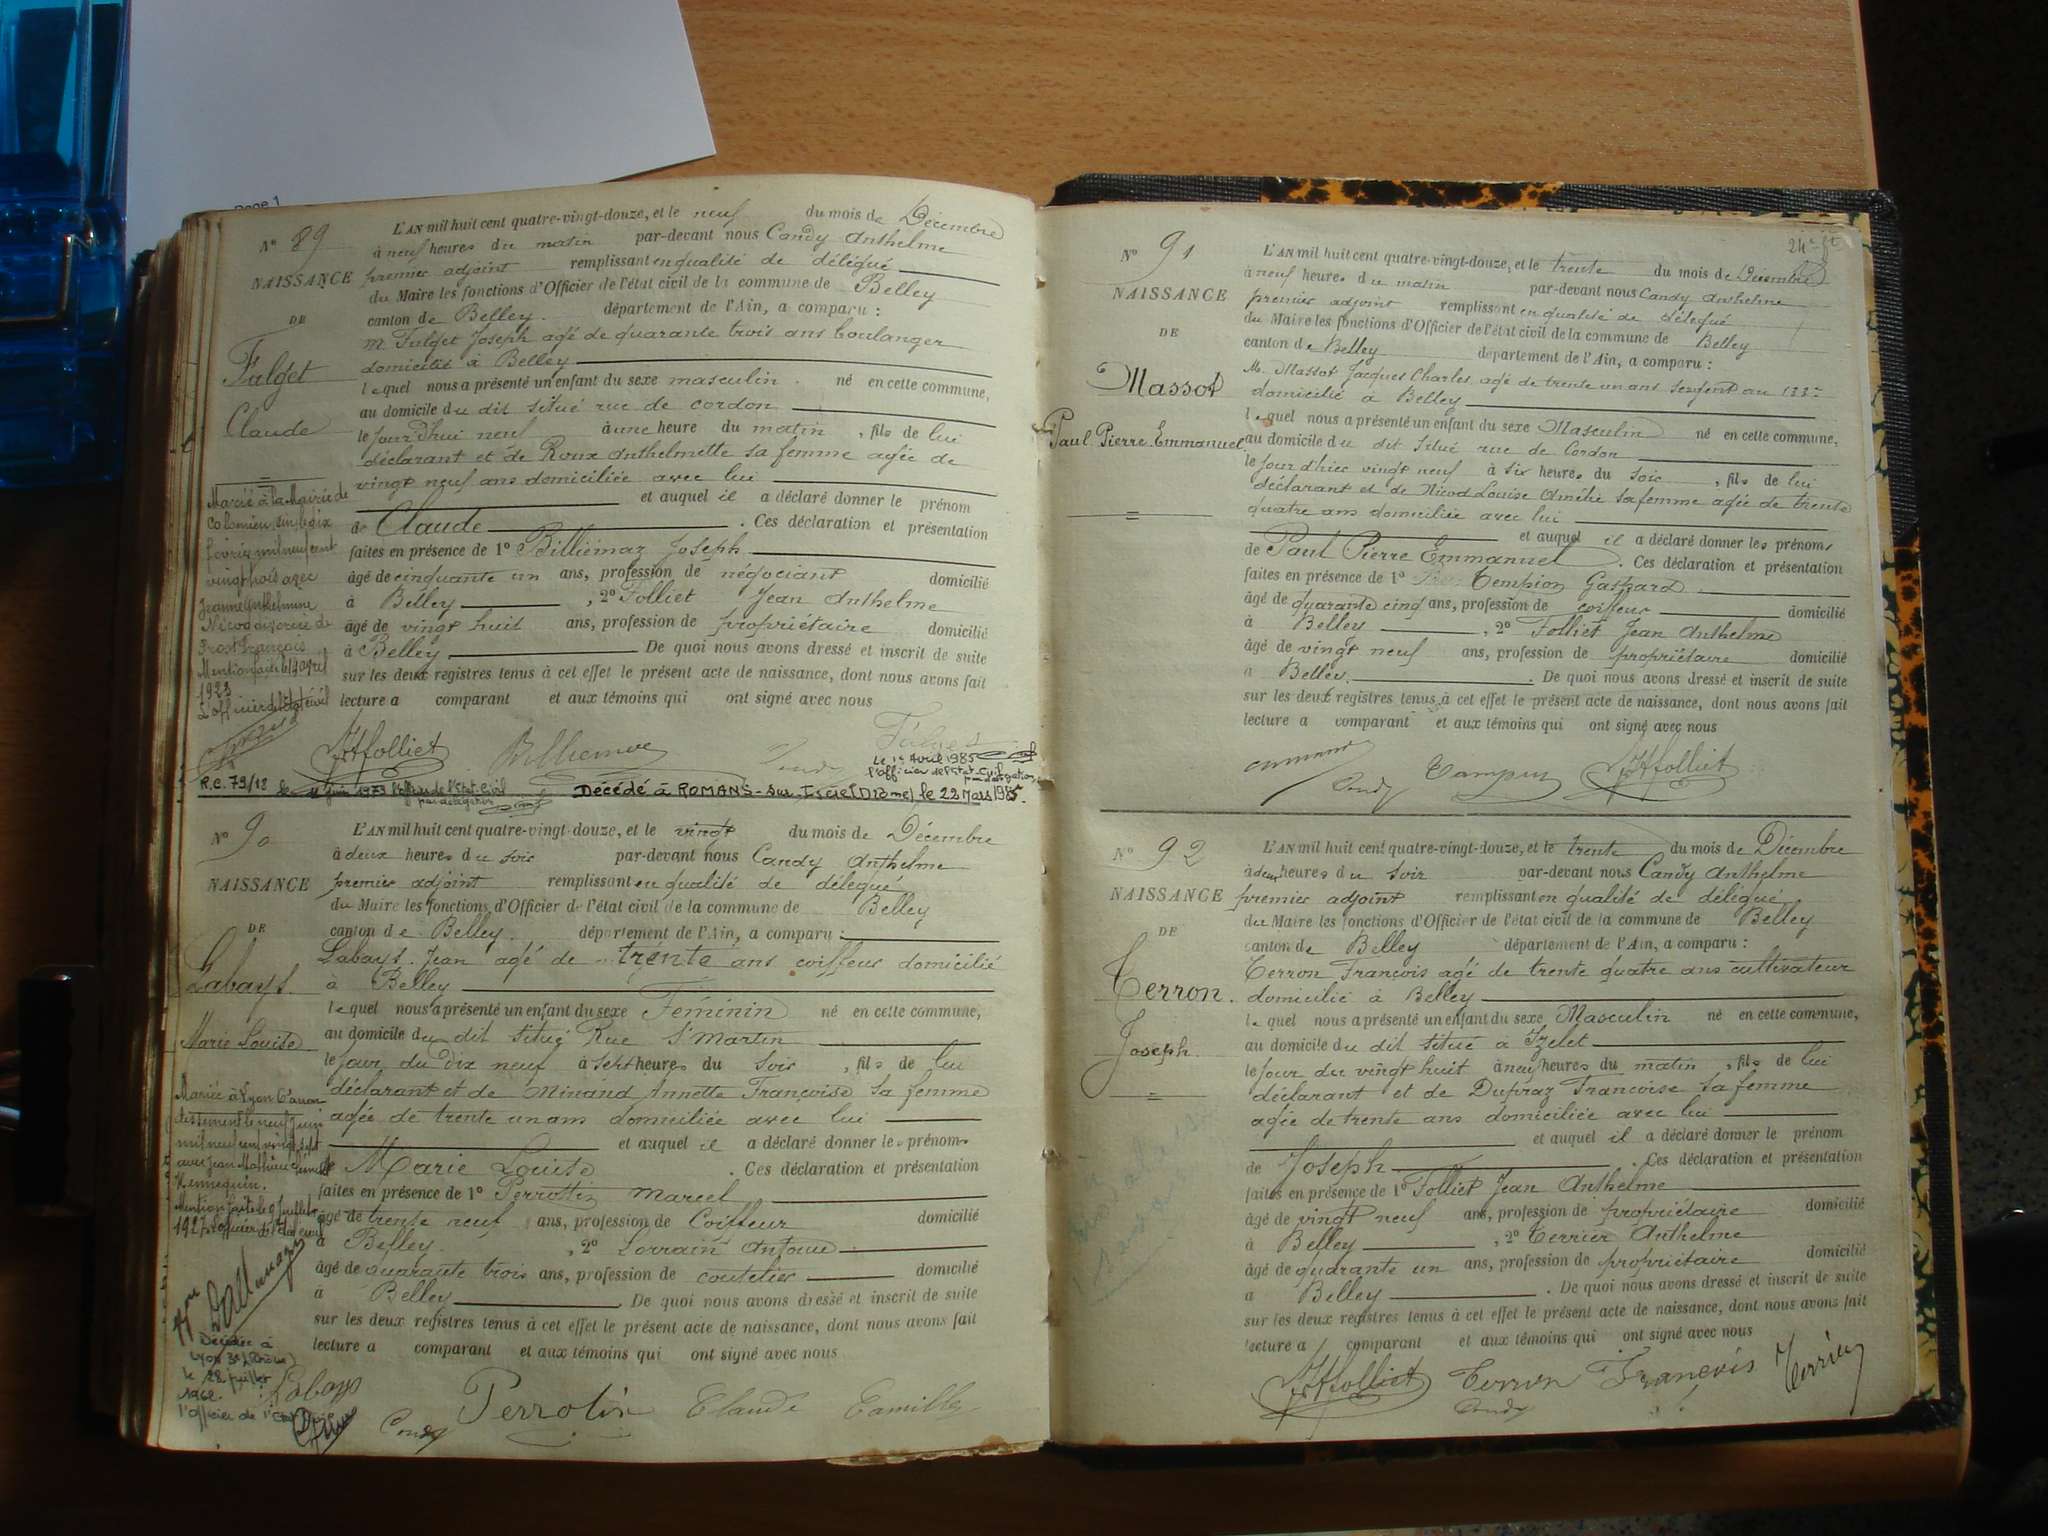 Page 1
N° 89
NAISSANCE
DE
Falget
Claude
L'AN mil huit cent quatre-vingt-douze, et le neuf du mois de Décembre
à neuf heures du matin par-devant nous Candy Anthelme
premier adjoint remplissant en qualité de délégué
du Maire les fonctions d'Officier de l'état civil de la commune de Belley
canton de Belley. département de l'Ain, a comparu :
M. Falget Joseph agé de quarante trois ans boulanger
domicilié à Belley
lequel nous a présenté un enfant du sexe masculin. né en cette commune,
au domicile du dit situé rue de cordon
le jourd'hui neuf à une heure du matin, fils de lui
déclarant et de Roux Anthelmette sa femme agée de
vingt neuf ans domiciliée avec lui
et auquel il a déclaré donner le prénom
de Claude. Ces déclaration et présentation
faites en présence de 1° Billiemaz Joseph
âgé de cinquante un ans, profession de négociant domicilié
à Belley, 2° Folliet Jean Anthelme
âgé de vingt huit ans, profession de propriétaire domicilié
à Belley De quoi nous avons dressé et inscrit de suite
sur les deux registres tenus à cet effet le présent acte de naissance, dont nous avons fait
lecture a comparant et aux témoins qui ont signé avec nous
Marié à la Mairie de
Colomieu, sur le dix
février mil neuf cent
vingt trois avec
Jeanne Anthelmine
Nicod divorcée de
Prost François
Mention faite le 14 avril
1923
L'officier de l'état civil
JAfolliet Billiemaz Candy Falget
Le 1er Avril 1985
l'officier de l'Etat-Civil
par délégation,
R.C. 79/18 le 11 juin 1979 l'officier de l'état-Civil
par délégation
Décédé à ROMANS-sur-Isère (Drôme) le 22 Mars 1985.
N° 90
NAISSANCE
DE
Labays.
Marie Louise
L'AN mil huit cent quatre-vingt-douze, et le vingt du mois de Décembre
à deux heures du soir par-devant nous Candy Anthelme
premier adjoint remplissant en qualité de délégué
du Maire les fonctions d'Officier de l'état civil de la commune de Belley
canton de Belley. département de l'Ain, a comparu :
Labays. Jean agé de trente ans coiffeur domicilié
à Belley
lequel nous a présenté un enfant du sexe Féminin né en cette commune,
au domicile du dit situé Rue St Martin
le jour du dix neuf à sept heures du soir, fils de lui
déclarant et de Minand Annette Françoise sa femme
agée de trente un ans domiciliée avec lui
et auquel il a déclaré donner les prénoms
de Marie Louise. Ces déclaration et présentation
faites en présence de 1° Perrottin Marcel
âgé de trente neuf ans, profession de Coiffeur domicilié
à Belley, 2° Lorrain Antoine
âgé de quarante trois ans, profession de coutelier domicilié
à Belley. De quoi nous avons dressé et inscrit de suite
sur les deux registres tenus à cet effet le présent acte de naissance, dont nous avons fait
lecture a comparant et aux témoins qui ont signé avec nous
Mariée à Lyon 6e arron
dissement le neuf juin
mil neuf cent vingt sept
avec Jean Mathieu
Hennequin.
Mention faite le 9 juillet
1927 L'officier de l'état civil
Décédée à
Lyon 3e (Rhône)
le 28 juillet
1962.
l'officier de l'état civil
Labays Candy Perrotin Claude Camille
24e et
N° 91
NAISSANCE
DE
Massot
Paul Pierre Emmanuel
L'AN mil huit cent quatre-vingt-douze, et le trente du mois de Décembre
à neuf heures du matin par-devant nous Candy Anthelme
premier adjoint remplissant en qualité de délégué
du Maire les fonctions d'Officier de l'état civil de la commune de Belley
canton de Belley département de l'Ain, a comparu :
M. Massot Jacques Charles, agé de trente un ans sergent au 133e
domicilié à Belley
lequel nous a présenté un enfant du sexe Masculin né en cette commune,
au domicile du dit situé rue de Cordon
le jour d'hier vingt neuf à six heures du soir, fils de lui
déclarant et de Nicod Louise Amélie sa femme agée de trente
quatre ans domiciliée avec lui
et auquel il a déclaré donner les prénoms
de Paul Pierre Emmanuel. Ces déclaration et présentation
faites en présence de 1° Tempion Gaspard
âgé de quarante cinq ans, profession de coiffeur domicilié
à Belley, 2° Folliet Jean Anthelme
âgé de vingt neuf ans, profession de propriétaire domicilié
à Belley. De quoi nous avons dressé et inscrit de suite
sur les deux registres tenus à cet effet le présent acte de naissance, dont nous avons fait
lecture a comparant et aux témoins qui ont signé avec nous
Candy JAfolliet
N° 92
NAISSANCE
DE
Terron.
Joseph.
L'AN mil huit cent quatre-vingt-douze, et le trente du mois de Décembre
à deux heures du soir par-devant nous Candy Anthelme
premier adjoint remplissant en qualité de délégué
du Maire les fonctions d'Officier de l'état civil de la commune de Belley
canton de Belley département de l'Ain, a comparu :
Terron François agé de trente quatre ans cultivateur
domicilié à Belley
lequel nous a présenté un enfant du sexe Masculin né en cette commune,
au domicile du dit situé à Izelet
le jour du vingt huit à neuf heures du matin, fils de lui
déclarant et de Dupraz Françoise sa femme
agée de trente ans domiciliée avec lui
et auquel il a déclaré donner le prénom
de Joseph. Ces déclaration et présentation
faites en présence de 1° Folliet Jean Anthelme
âgé de vingt neuf ans, profession de propriétaire domicilié
à Belley, 2° Terrier Anthelme
âgé de quarante un ans, profession de propriétaire domicilié
à Belley. De quoi nous avons dressé et inscrit de suite
sur les deux registres tenus à cet effet le présent acte de naissance, dont nous avons fait
lecture a comparant et aux témoins qui ont signé avec nous
JAfolliet Candy Terron François Terrier